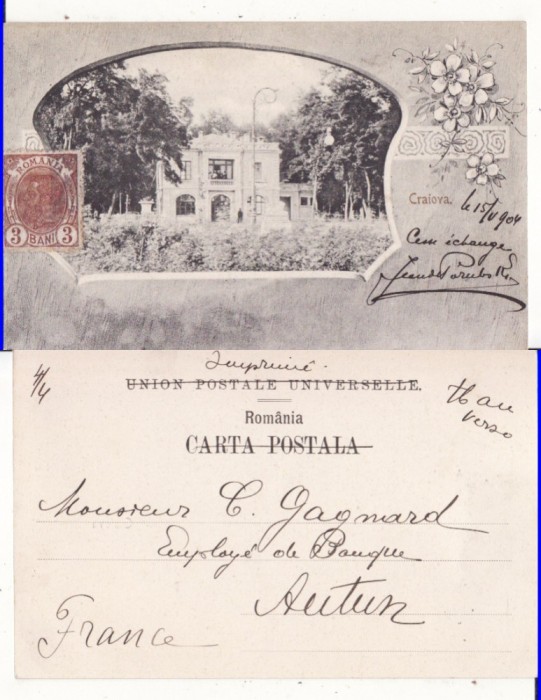 ROMANIA
3 BANI 3
Craiova.
le 15/V 904
Cess échange
4/4
Imprimé.
UNION POSTALE UNIVERSELLE.
România
CARTA POSTALA
verso
Monsieur C. Gagnard
Employé de Banque
Autun
France